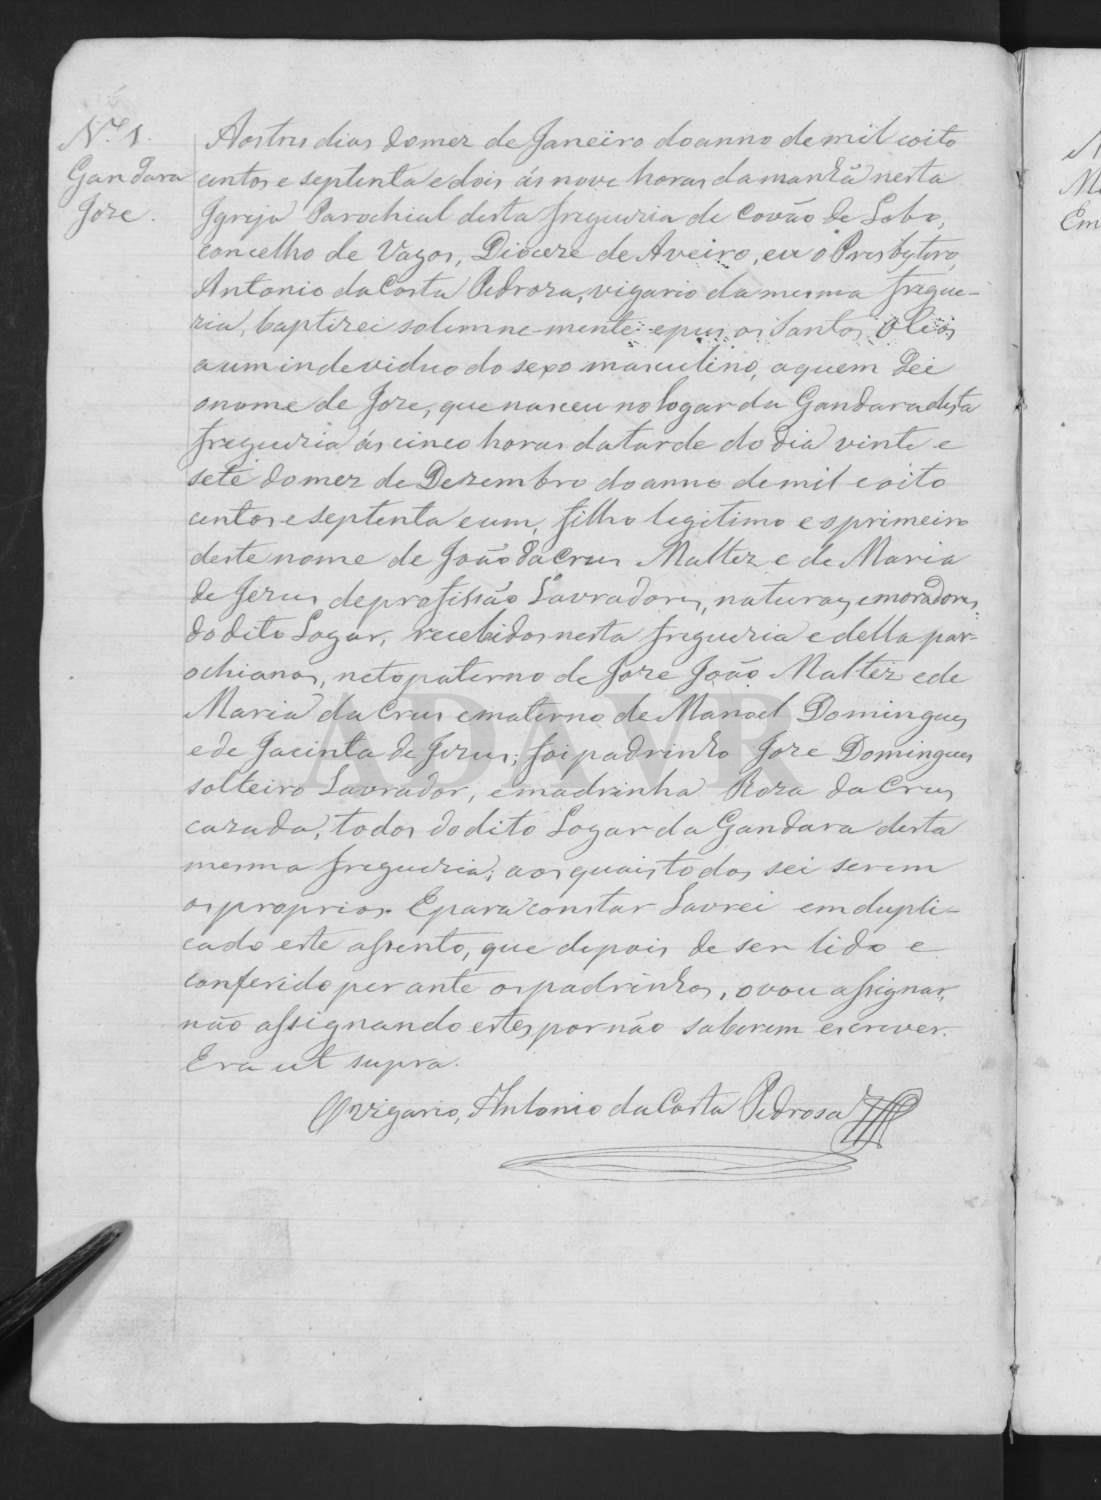 Nº 1.
Gandara
Joze.
Aos tres dias do mez de Janeiro do anno de mil e oito
centos e septenta e dois ás nove horas da manhã nesta
Igreja Parochial desta freguezia de Covão de Lobo,
concelho de Vagos, Diocese de Aveiro, eu o Presbytero,
Antonio da Costa Pedroza, vigario da mesma fregue-
zia, baptizei solemne-mente e puz os Santos Oleos
a um indeviduo do sexo masculino, a quem Dei
o nome de Joze, que nasceu no logar da Gandara desta
freguezia ás cinco horas da tarde do dia vinte e
sete do mez de Dezembro do anno de mil e oito
centos e septenta e um, filho legitimo e o primeiro
deste nome de João da Crus Maltez e de Maria
de Jezus de profissão Lavradores, naturaes e moradores
do dito Logar, recebidos nesta freguezia e della par-
ochianos, neto paterno de Joze João Maltez e de
Maria da Crus e materno de Manoel Domingues
e de Jacinta de Jezus; foi padrinho Joze Domingues
solteiro Lavrador, e madrinha Roza da Crus
cazada, todos do dito Logar da Gandara desta
mesma freguezia, aos quais todos sei serem
os proprios. E para constar Lavrei em dupli-
cado este assento, que depois de ser lido e
conferido per ante os padrinhos, o vou assignar,
não assignando estes por não saberem escrever.
Era ut supra.
O vigario, Antonio da Costa Pedrosa
ADAVR
N
Ma
Em